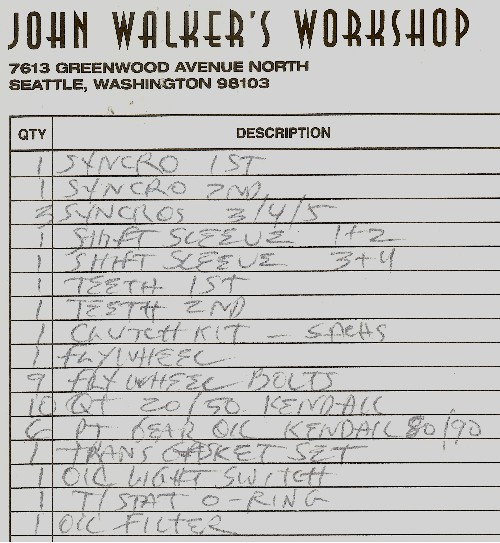 JOHN WALKER'S WORKSHOP
7613 GREENWOOD AVENUE NORTH
SEATTLE, WASHINGTON 98103
QTY DESCRIPTION
1 SYNCRO 1ST
1 SYNCRO 2ND
3 SYNCROS 3/4/5
1 SHIFT SLEEVE 1+2
1 SHIFT SLEEVE 3+4
1 TEETH 1ST
1 TEETH 2ND
1 CLUTCH KIT - SACHS
1 FLYWHEEL
9 FLYWHEEL BOLTS
10 QT 20/50 KENDALL
6 PT GEAR OIL KENDALL 80/90
1 TRANS GASKET SET
1 OIL LIGHT SWITCH
1 T/STAT O-RING
1 OIL FILTER